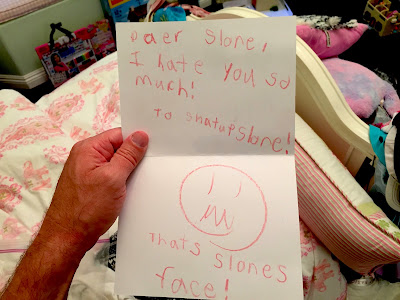 Daer Slone,
I hate you so
much!
To shatup Slone!
Thats Slones
face!